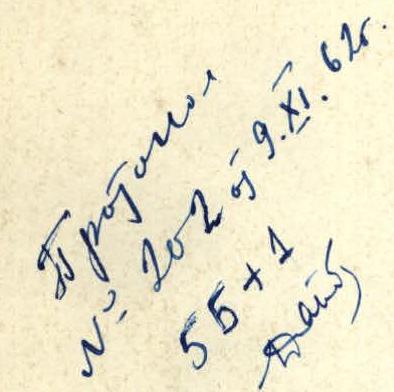 Протокол
№ 202 от 9.XI.62г.
55+1